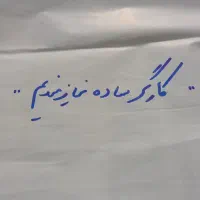 " کارگر ساده نیازمندیم "